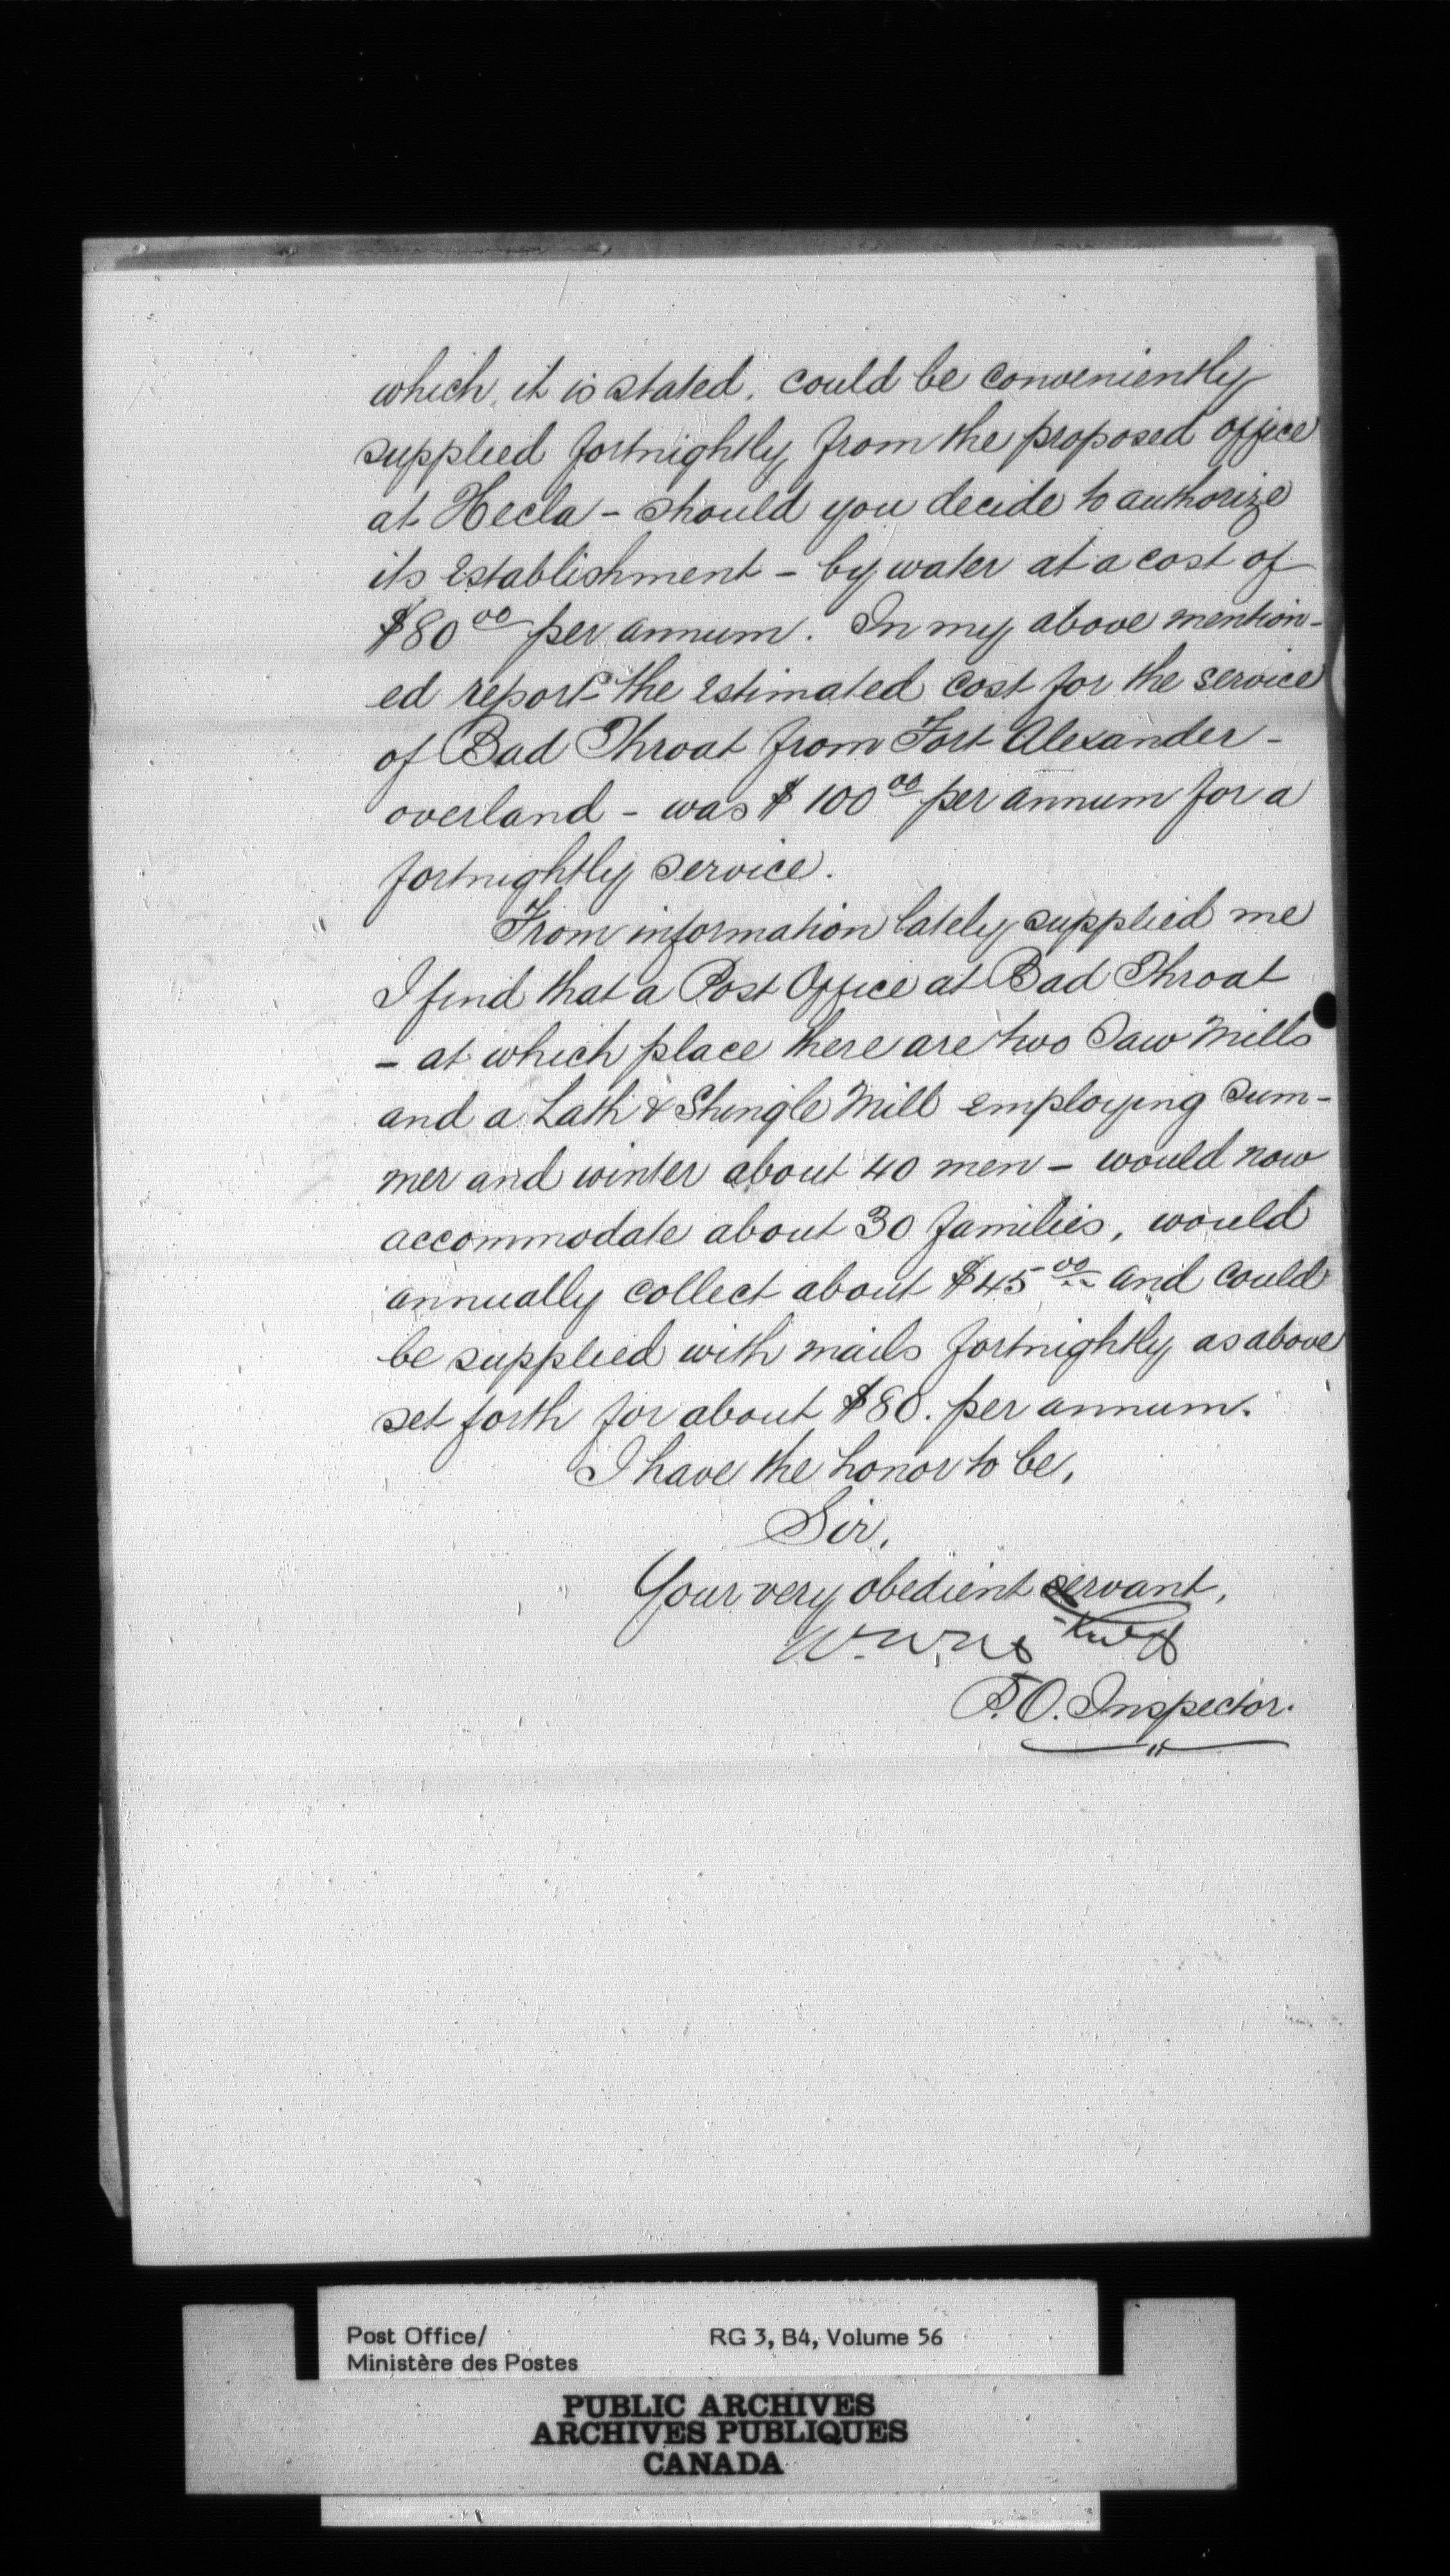 which, it is stated, could be conveniently
supplied fortnightly from the proposed office
at Hecla - should you decide to authorize
its establishment - by water at a cost of
$80 00 per annum. In my above mention-
ed report the estimated cost for the service
of Bad Throat from Fort Alexander -
overland - was $100 00 per annum for a
fortnightly service.
From information lately supplied me
I find that a Post Office at Bad Throat
- at which place there are two Saw Mills
and a Lath & Shingle Mill employing sum-
mer and winter about 40 men - would now
accommodate about 30 families, would
annually collect about $45 00 and could
be supplied with mails fortnightly as above
set forth for about $80. per annum.
I have the honor to be,
Sir,
Your very obedient servant,
P.O. Inspector.
Post Office/ RG 3, B4, Volume 56
Ministère des Postes
PUBLIC ARCHIVES
ARCHIVES PUBLIQUES
CANADA